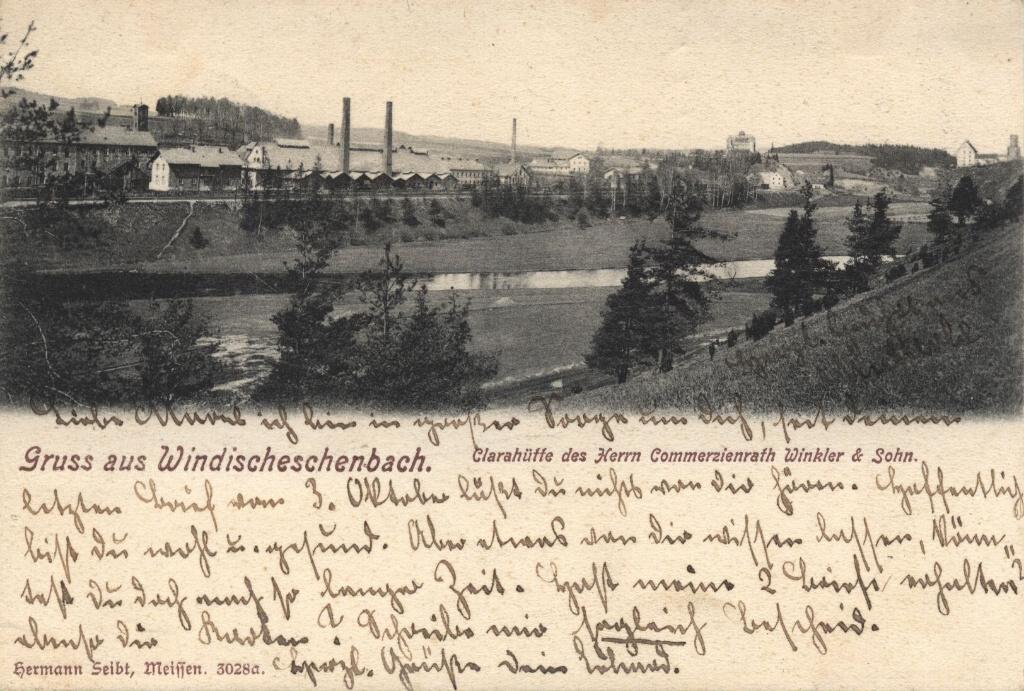 Liebe Marel ich bin in großer Sorge um dich, seit deinem
Gruss aus Windischeschenbach. Clarahütte des Herrn Commerzienrath Winkler & Sohn.
letzten Brief vom 3. Oktober läßt du nichts von dir hören. Hoffentlich
bist du wohl u. gesund. Aber etwas von dir wissen lassen, könn„
test du doch nach so langer Zeit. Hast meine 2 Briefe erhalten?
ebenso die Karten? Schreibe mir sogleich Bescheid.
Hermann Seibt, Meissen. 3028a. Herzl. Grüße dein